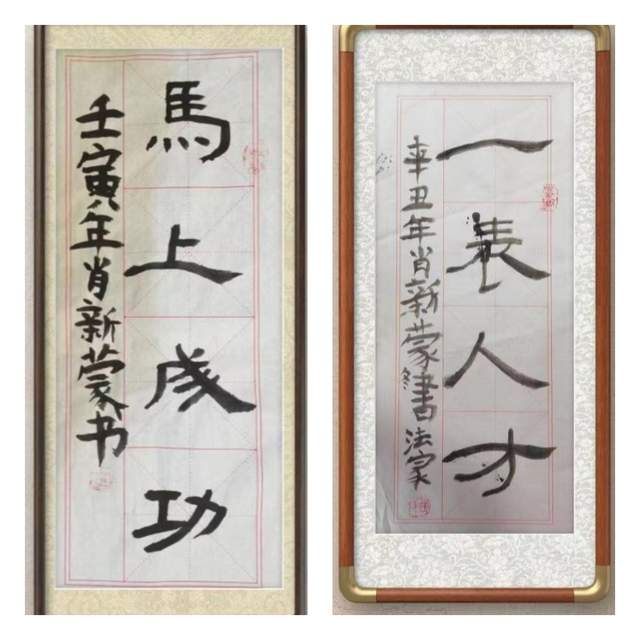 馬上成功
壬寅年肖新蒙书
一表人才
辛丑年肖新蒙書法家
冬